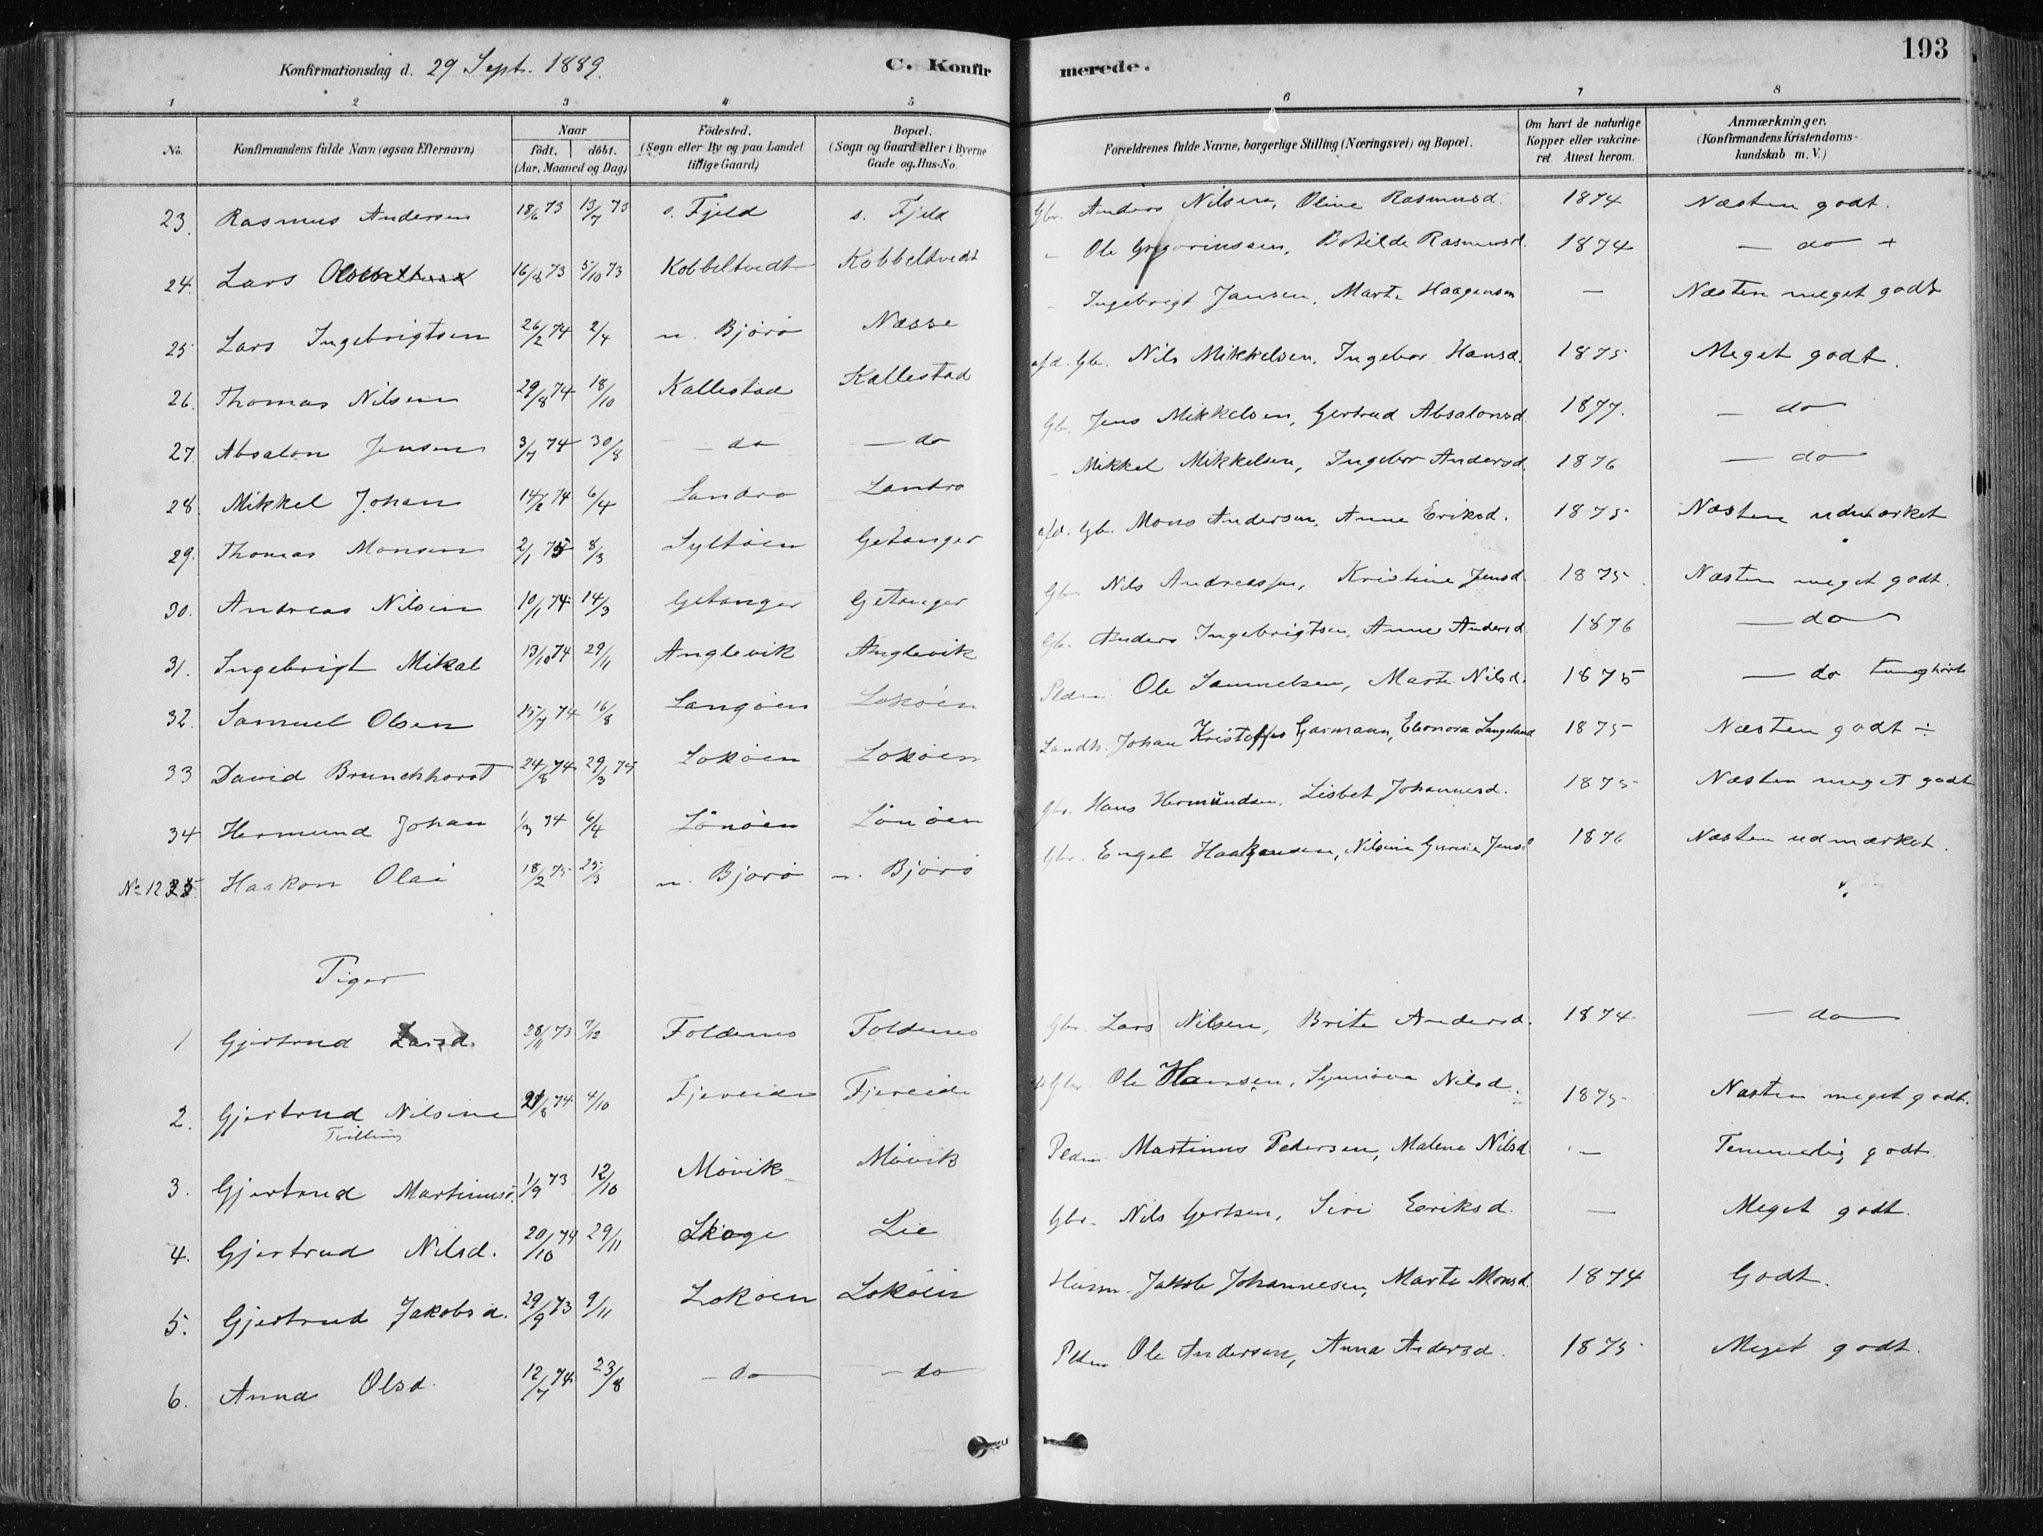 193
Konfirmationsdag d. 29 Sept. 1889. C. Konfir merede.
1 2 3 4 5 6 7 8
No. Konfirmandens fulde Navn (ogsaa Efternavn) Naar födt. döbt. (Aar, Maaned og Dag) Födested. (Sogn eller By og paa Landet tillige Gaard) Bopæl. (Sogn og Gaard eller i Byerne Gade og Hus-No. Forældrenes fulde Navne, borgerlige Stilling (Næringsvei) og Bopæl. Om havt de naturlige Kopper eller vakcineret. Attest herom. Anmærkninger. (Konfirmandens Kristendomskundskab m. V.)
23. Rasmus Andersen 18/6 73 13/7 73 s. Fjeld s. Fjeld Gbr. Anders Nilsen, Oline Rasmusd. 1874 Næsten godt.
24. Lars 16/8 73 5/10 73 Kobbeltvedt Kobbeltvedt " Ole Gregoriussen, Botilde Rasmusd. 1874 — do +
25 Lars Ingebrigtsen 26/2 74 2/4 n. Bjorö Næsse " Ingebrigt Jansen, Marte Haagensen — Næsten meget godt
26. Thomas Nilsen 29/8 74 18/10 Kallestad Kallestad afd. Gbr. Nils Mikkelsen, Ingebor Hansd. 1875 Meget godt.
27. Absalon Jensen 3/7 74 30/8 — do — do Gbr. Jens Mikkelsen, Gertrud Absalonsd 1877. — do
28. Mikkel Johan 14/2 74 6/4 Landro Landro " Mikkel Mikkelsen, Ingebor Andersd. 1876 — do
29. Thomas Monsen 2/1 75 8/3 Syltöen Getanger afd. Gbr. Mons Andersen, Anne Eriksd. 1875 Næsten udmærket
30. Andreas Nilsen 10/1 74 14/3 Getanger Getanger Gbr. Nils Andreassen, Kristine Jensd. 1875 Næsten meget godt.
31. Ingebrigt Mikal 13/10 74 29/11 Anglevik Anglevik Gbr. Anders Ingebrigtsen, Anne Andersd 1876 — do
32. Samuel Olsen 25/7 74 16/8 Langöen Loköen Pldm. Ole Samuelsen, Marte Nilsd. 1875 — do tunghört
33 David Brunchhorst 24/8 74 29/3 75 Loköen Loköen Landh. Johan Kristoffer Garmann, Eleonora Langeland 1875 Næsten godt ÷
34 Hermund Johan 1/3 74 6/4 Lönöen Lönöen Gbr. Hans Hermundsen, Lisbet Johannesd. 1875 Næsten meget godt
No 12 35. Haakon Olai 18/2 75 25/3 n. Bjorö n. Bjorö Gbr. Engel Haakensen, Nilsine Jensd 1876 Næsten udmærket.
Piger
1 Gjertrud Larsd. 28/11 73 7/12 Foldenes Foldenes Gbr. Lars Nilsen, Brite Andersd. 1874 — do
2. Gjertrud Nilsine 21/8 74 4/10 Fjereide Fjereide Gbr Ole Hansen, Synnöva Nilsd. 1875 Næsten meget godt.
Tvilling
3. Gjertrud Martinusd. 1/9 73 12/10 Mövik Mövik Pldm. Martinus Pedersen, Malene Nilsd — Temmelig godt.
4. Gjertrud Nilsd. 20/10 74 29/11 Skoge Lie Gbr. Nils Gertsen, Siri Eeriksd. — Meget godt.
5. Gjertrud Jakobsd. 29/9 73 9/11 Loköen Loköen Husm. Jakob Johannesen, Marte Monsd. 1874 Godt.
6. Anna Olsd. 12/7 74 23/8 — do — do Pldm. Ole Andersen, Anna Andersd. 1875 Meget godt.